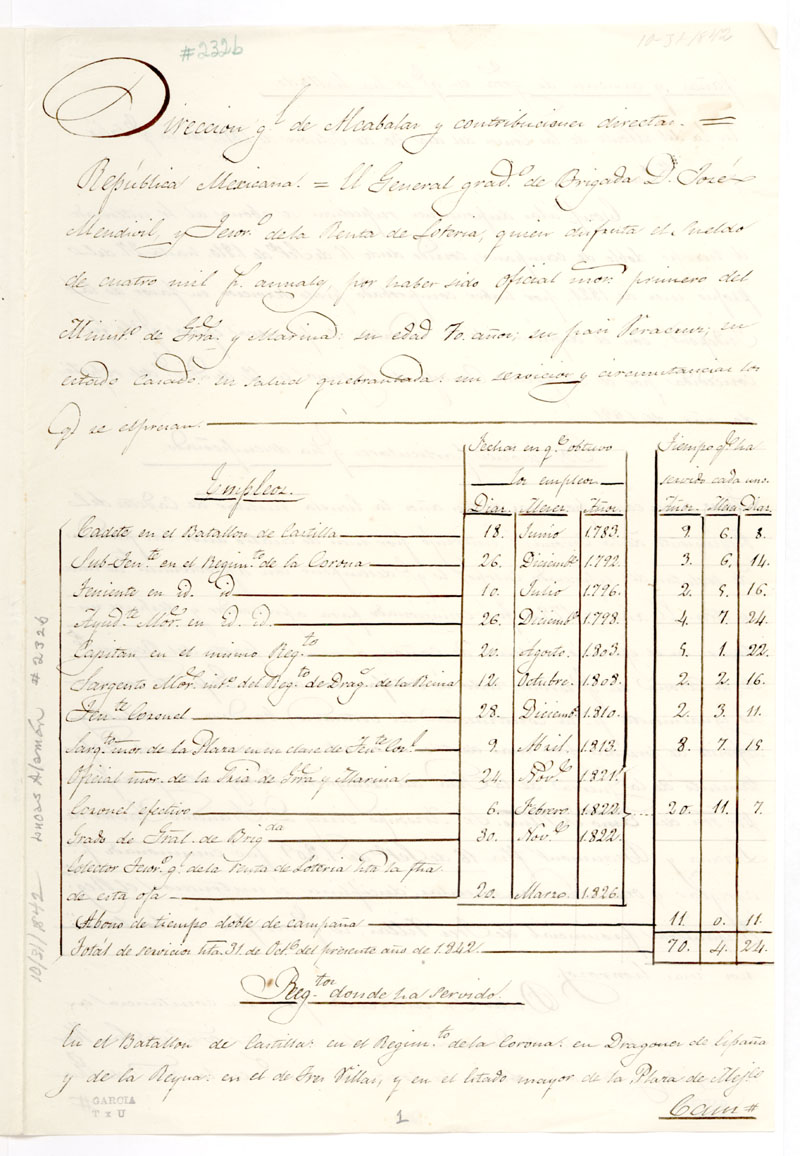 #2326
10-31-1842
Direccion gl. de Alcabalas y contribuciones directas. =
República Mexicana. = El General gradº. de Brigada D. José
Mendivil, y Tesorº. de la Renta de Loteria, quien disfruta el Sueldo
de cuatro mil ps. annals, por haber sido Oficial mor. primero del
Ministº. de Grra. y Marina: su edad 70. años; su pais Veracruz; su
estado casado: su salud quebrantada: sus servicios y circunstancias los
qe. se espresan.
Fechas en qe. obtuvo los empleos
Tiempo qe. ha servido cada uno.
Empleos.
Dias. Meses. Años.
Años. Mes. Dias.
Cadete en el Batallon de Castilla 18. Junio 1.783. 9. 6. 8.
Sub-Tente. en el Regimto. de la Corona 26. Diciembe. 1.792. 3. 6. 14.
Teniente en id. id 10. Julio 1.796. 2. 5. 16.
Ayudte. Mor. en id. id. 26. Diciembe. 1.798. 4. 7. 24.
Capitan en el mismo Regto. 20. Agosto. 1.803. 5. 1. 22.
Sargento Mor. intº. del Regto. de Drags. de la Reina 12. Octubre. 1.808. 2. 2. 16.
Tente. Coronel 28. Diciembe. 1.810. 2. 3. 11.
Sargto. mor. de la Plaza en su clase de Tente. Corl. 9. Abril. 1.813. 8. 7. 15.
Oficial mor. de la Sria de Grra y Marina 24. Nove. 1.821.
Coronel efectivo 6. Febrero. 1.822. 20. 11. 7.
Grado de Gral. de Brigda 30. Nove. 1.822.
Colector Tesorº. gl. de la Renta de Loteria hta la fha
de esta ofa 20. Marzo. 1.826.
Abono de tiempo doble de campaña 11. 0. 11.
Total de servicios hta. 31 de Octe. del presente año de 1.842. 70. 4. 24.
Regtos. donde ha servido.
En el Batallon de Castilla: en el Regimto. de la Corona: en Dragones de España
y de la Reyna: en el de Tres Villas, y en el Estado mayor de la Plaza de Mejco
Cam #
GARCIA
T x U
1
10/31/1842 Lucas Alamán #2326